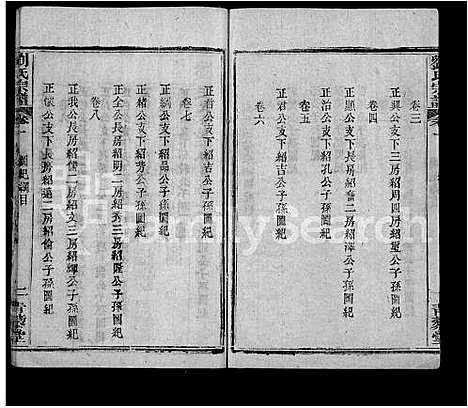 卷三
正興公支下三房紹周四房紹皇公子孫圖紀
卷四
正顯公支下長房紹富二房紹澤公子孫圖紀
正文公支下紹孔公子孫圖紀
卷五
正 公支下紹吉公子孫圖紀
卷六
正綱公支下紹品公子孫圖紀
正緒公支下紹芳公子孫圖紀
卷七
正全公房紹明二房紹秀三房紹 公子孫圖紀
正我公長房紹 二房紹文三房紹輝公子孫圖紀
卷八
正儀公支下長房紹道二房紹倫公子孫圖紀
劉氏宗譜
卷一
圖紀綱目
二
青藜堂
FamilySearch